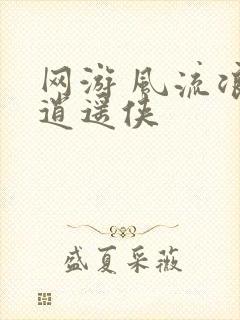 网游风流浪
逍遥侠
盛夏采薇